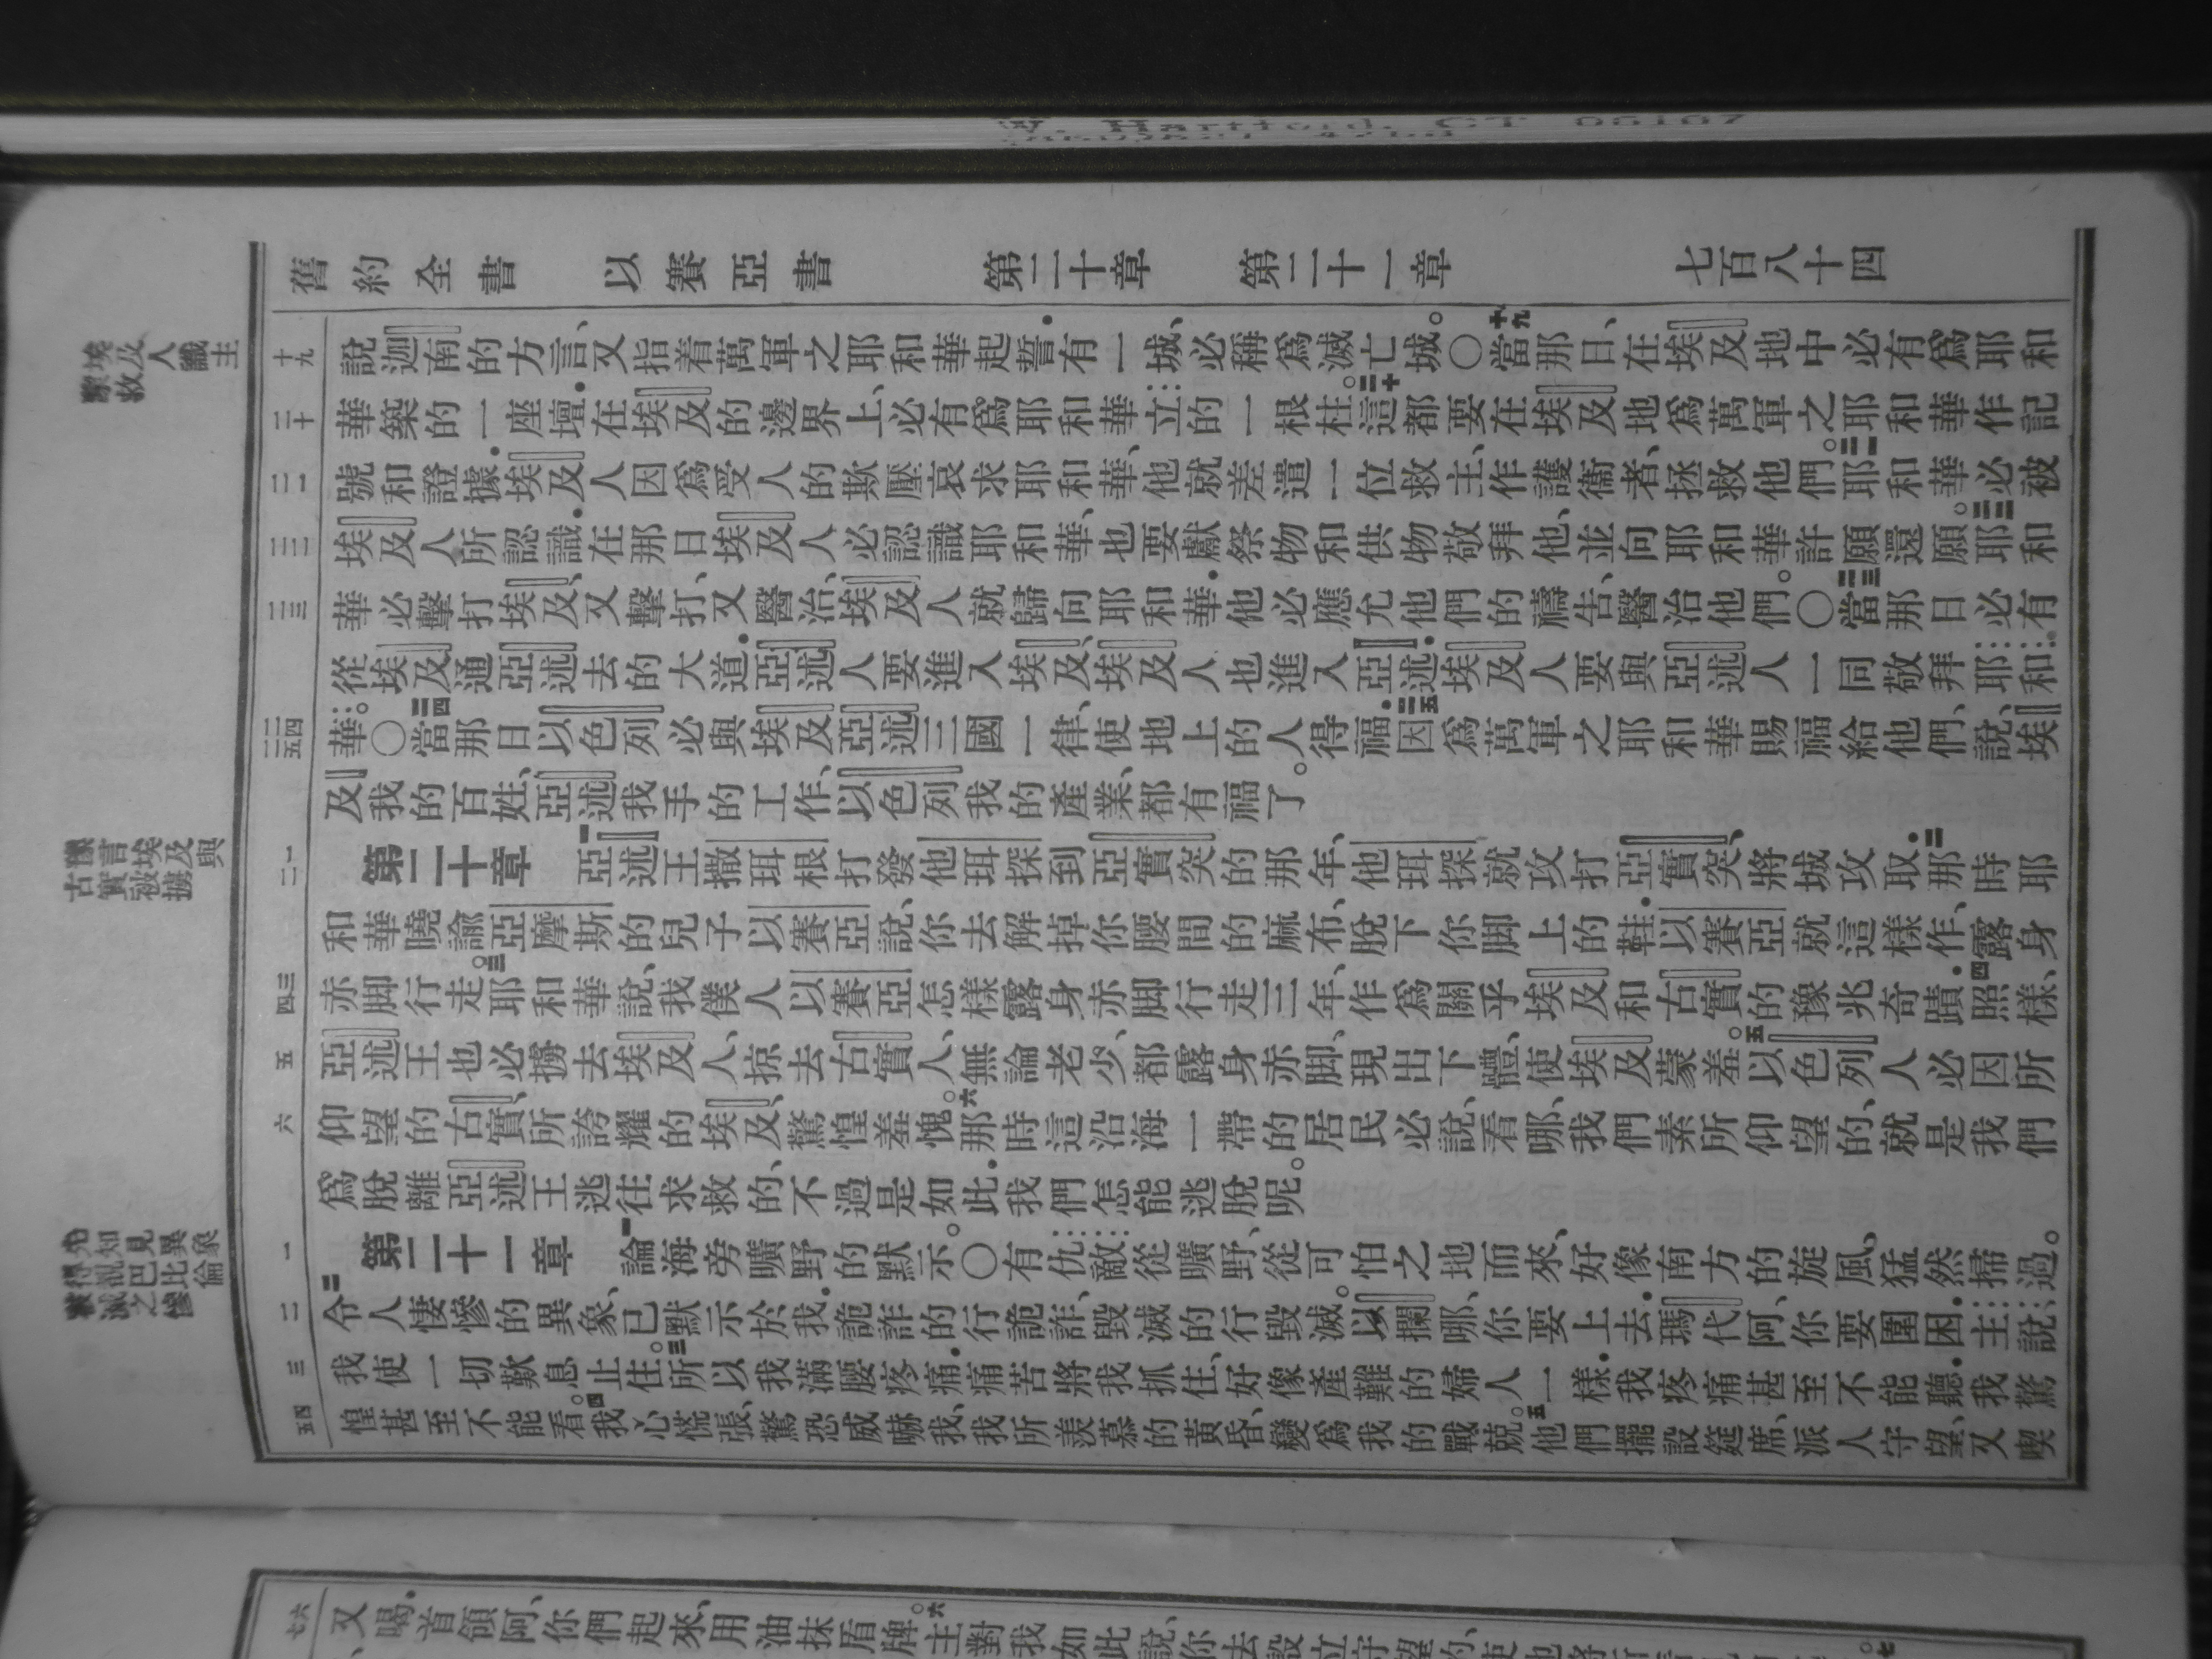 W. Hartford, CT 06107
舊約全書 以賽亞書 第二十章 第二十一章 七百八十四
埃及人識主
蒙救
十九
說迦南的方言、又指着萬軍之耶和華起誓．有一城、必稱爲滅亡城。〇十九當那日、在埃及地中必有爲耶和
二十
華築的一座壇．在埃及的邊界上、必有爲耶和華立的一根柱。二十這都要在埃及地爲萬軍之耶和華作記
二一
號和證據．埃及人因爲受人的欺壓哀求耶和華、他就差遣一位救主、作護衞者、拯救他們。二一耶和華必被
二二
埃及人所認識．在那日埃及人必認識耶和華、也要獻祭物和供物敬拜他、並向耶和華許願還願。二二耶和
二三
華必擊打埃及、又擊打、又醫治、埃及人就歸向耶和華．他必應允他們的禱告、醫治他們。〇二三當那日必有
從埃及通亞述去的大道．亞述人要進入埃及、埃及人也進入亞述．埃及人要與亞述人一同敬拜耶和
二四
二五
華。〇二四當那日以色列必與埃及亞述三國一律、使地上的人得福．二五因爲萬軍之耶和華賜福給他們、說、埃
及我的百姓、亞述我手的工作、以色列我的產業、都有福了。
豫言埃及與
古實被擄
一
二
第二十章 一亞述王撒珥根打發他珥探到亞實突的那年、他珥探就攻打亞實突、將城攻取．二那時耶
和華曉諭亞摩斯的兒子以賽亞說、你去解掉你腰間的麻布、脫下你脚上的鞋．以賽亞就這樣作、露身
三
四
赤脚行走。三耶和華說、我僕人以賽亞怎樣露身赤脚行走三年、作爲關乎埃及和古實的豫兆奇蹟．四照樣、
五
亞述王也必擄去埃及人、掠去古實人、無論老少、都露身赤脚、現出下體、使埃及蒙羞。五以色列人必因所
六
仰望的古實、所誇耀的埃及、驚惶羞愧。六那時這沿海一帶的居民必說、看哪、我們素所仰望的、就是我們
爲脫離亞述王逃往求救的、不過是如此．我們怎能逃脫呢。
先知見異象
得視巴比倫
被滅之慘
一
第二十一章 一論海旁曠野的默示。〇有仇敵從曠野、從可怕之地而來、好像南方的旋風、猛然掃過。
二
二令人悽慘的異象、已默示於我．詭詐的行詭詐、毀滅的行毀滅。以攔哪、你要上去．瑪代阿、你要圍困．主說、
三
我使一切歎息止住。三所以我滿腰疼痛．痛苦將我抓住、好像產難的婦人一樣．我疼痛甚至不能聽．我驚
四
五
惶甚至不能看。四我心慌張、驚恐威嚇我、我所羨慕的黃昏、變爲我的戰兢。五他們擺設筵席、派人守望、又喫
六
七
又喝．首領阿、你們起來、用油抹盾牌。六主對我如此說、你去設立守望的、使他將所